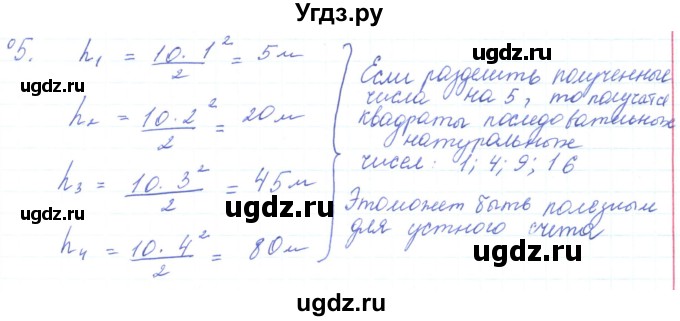 Угдз.ру
°5. h₁ = 10·1²/2 = 5м
ugdz.ru ugdz.ru
h₂ = 10·2²/2 = 20м
ugdz.ru
h₃ = 10·3²/2 = 45м
ugdz.ru
h₄ = 10·4²/2 = 80м
ugdz.ru
Если разделить полученные
числа на 5, то получатся
квадраты последовательных
натуральных
чисел: 1; 4; 9; 16
Это может быть полезным
для устного счета
ugdz.ru
ugdz.ru
ugdz.ru